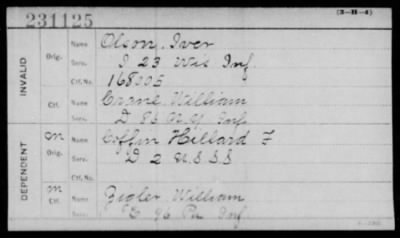 231125
(3-H-4)
INVALID
Orig.
Name Olson, Iver
Serv. I 23 Wis Inf.
Ctf. No. 168,005
Ctf.
Name Crane, William
Serv. D 83 N.Y. Inf
DEPENDENT
m
Orig.
Name Coffin Hillard F
Serv. D 2 U.S.S.S
Ctf. No.
m
Ctf.
Name Zigler William
Serv. E 96 Pa Inf